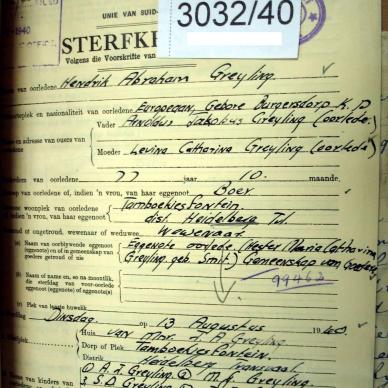 UNIE VAN SUID-
3032/40
1940
STERFKE
Volgens die Voorskrifte van
van oorledene Hendrik Abraham Greyling
plek en nasionaliteit van oorledene Europeaan, Gebore Burgersdorp K.P.
Vader Arnoldus Jakobus Greyling (oorlede)
en adresse van ouers van oorledene
Moeder Levina Catharina Greyling (oorlede)
van oorledene 77 jaar 10. maande.
van oorledene of, indien 'n vrou, van haar eggenoot Boer
woonplek van oorledene of, indien 'n vrou, van haar eggenoot Tamboekjesfontein.
dist. Heidelberg Tvl.
ongetroud, gewewenaar of weduwee Wewenaar
(a) Naam van oorblywende eggenoot (eggenote) en of in gemeenskap van goedere getroud of nie
Eggenote oorlede (Hester Maria Catharina
Greyling geb. Smit) Gemeenskap van Goedere
99462
(b) Naam of name en, so na moontlik, die sterfdag van voor-oorlede eggenoot (eggenote) of eggenote(s)
(c) Plek van laaste huwelik
Dinsdag op 13 Augustus 1940.
Huis van Mnr. J. A. Greyling
Dorp of Plek Tamboekjesfontein.
Distrik Heidelberg Transvaal
Name van kinders van